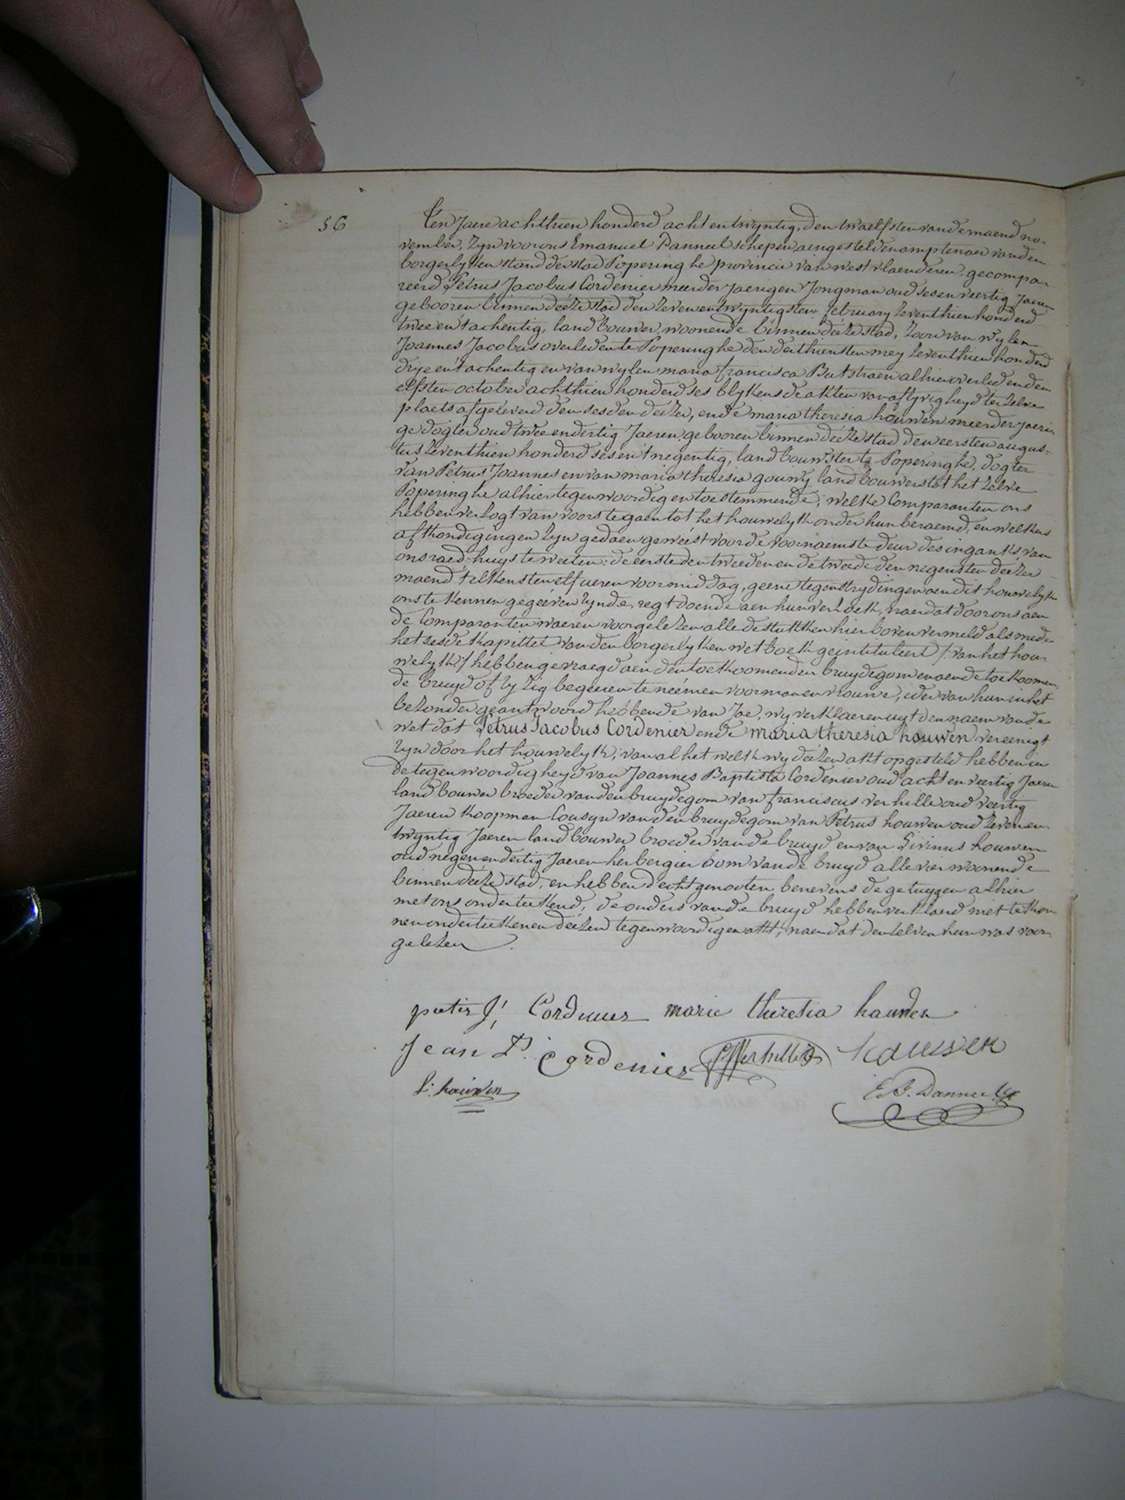 56
Ten Jaere achthien honderd acht en twyntig, den twaelfsten van de maend no-
vember, zyn voor ons Emanuel Danneel schepen aengestelden amptenaer van den
borgerlyken stand der stad Poperinghe provincie van west vlaenderen, gecompa-
reerd Petrus Jacobus Cordenier meerder jaerigen Jongman oud ses en veertig Jaeren
gebooren binnen deeze stad den zeven en twyntigsten february zeventhien honderd
twee en tachentig, land bouwer, woonende binnen deeze stad, zoon van wylen
Joannes Jacobus overleden te Poperinghe den derthiensten mey zeventhien honderd
drye en tachentig en van wylen maria francisca Butstraen alhier overleden den
elfsten october achthien honderd ses blykens de akten van aflyvigheyd ter zelve
plaets afgeleverd den sesden deezer, ende maria theresia houwen meerder jaeri-
ge dogter oud twee en dertig Jaeren, gebooren binnen deeze stad den eersten augus-
tus zeventhien honderd ses en negentig, land bouwster te Poperinghe, dogter
van Petrus Joannes en van maria theresia gouwy land bouwers tot het zelve
Poperinghe alhier tegenwoordig en toestemmende; welke Comparanten ons
hebben verzogt van voorts te gaen tot het houwelyk onder hun beraemd, en welkers
afkondigingen zyn gedaen geweest voor de voornaemste deur des ingangs van
ons raed-huys te weeten: de eerste den tweeden en de twede den negensten deezer
maend t'elkens ten elf ueren voor middag, geene tegenstrydingen aen dit houwelyk
ons te kennen gegeéven zynde, regt doende aen hun verzoek, naer dat door ons aen
de Comparanten waeren voorgelezen alle de stukken hier boven vermeld als mede
het sesde kapittel van den borgerlyken wet boek geintituleert / van het hou-
welyk / hebben gevraegd aen den toekoomenden bruydegom en aen de toekoomen-
de bruyd of zy zig begeeren te neémen voor man en vrouwe, eder van hun in het
bezonder geantwoord hebbende van Jae, wy verklaeren uyt den naem van de
wet dat Petrus Jacobus Cordenier ende maria theresia houwen vereenigt
zyn door het houwelyk; van al het welk wy deézen akt opgesteld hebben in
de tegenwoordigheyd van Joannes Baptiste Cordenier oud acht en veertig Jaeren
land bouwer broeder van den bruydegom van franciscus verhille oud veertig
Jaeren koopman Cousyn van den bruydegom van Petrus houwen oud zeven en
twyntig Jaeren land bouwer broeder van de bruyd en van Livinus houwen
oud negen en dertig Jaeren herbergier oom van de bruyd alle vier woonende
binnen deeze stad, en hebben d'echtgenooten benevens de getuygen alhier
met ons onderteekend; de ouders van de bruyd hebben verklaerd niet te kon-
nen onderteekenen deézen tegenwoordigen akt, naer dat den zelven hun was voor-
gelezen.
pieter J. Cordenier marie theresia houwen
Jean B. Cordenier F. Verhille houwen
L: houwen
E. J. Danneel